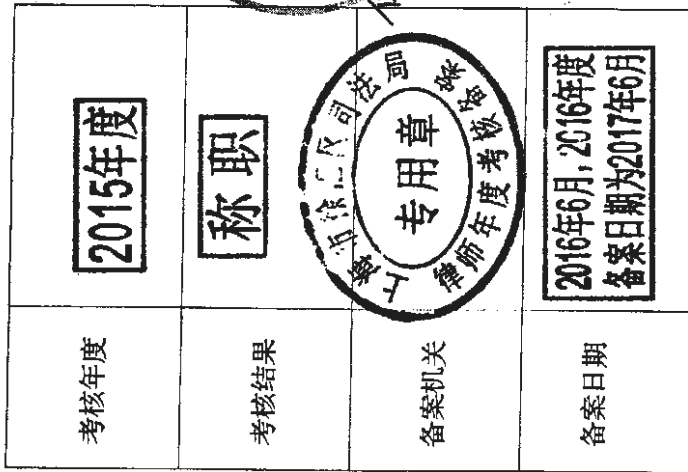 考核年度
2015年度
考核结果
称职
备案机关
上海市徐汇区司法局
专用章
律师年度考核备案
备案日期
2016年6月，2016年度
备案日期为2017年6月